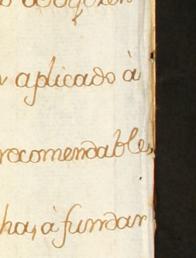 aplicado à
recomendable,
hay à fundar